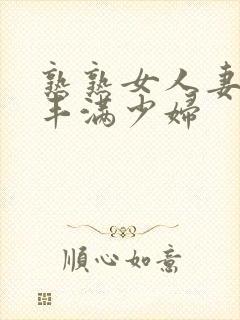 熟熟女人妻
丰满少婦
順心如意